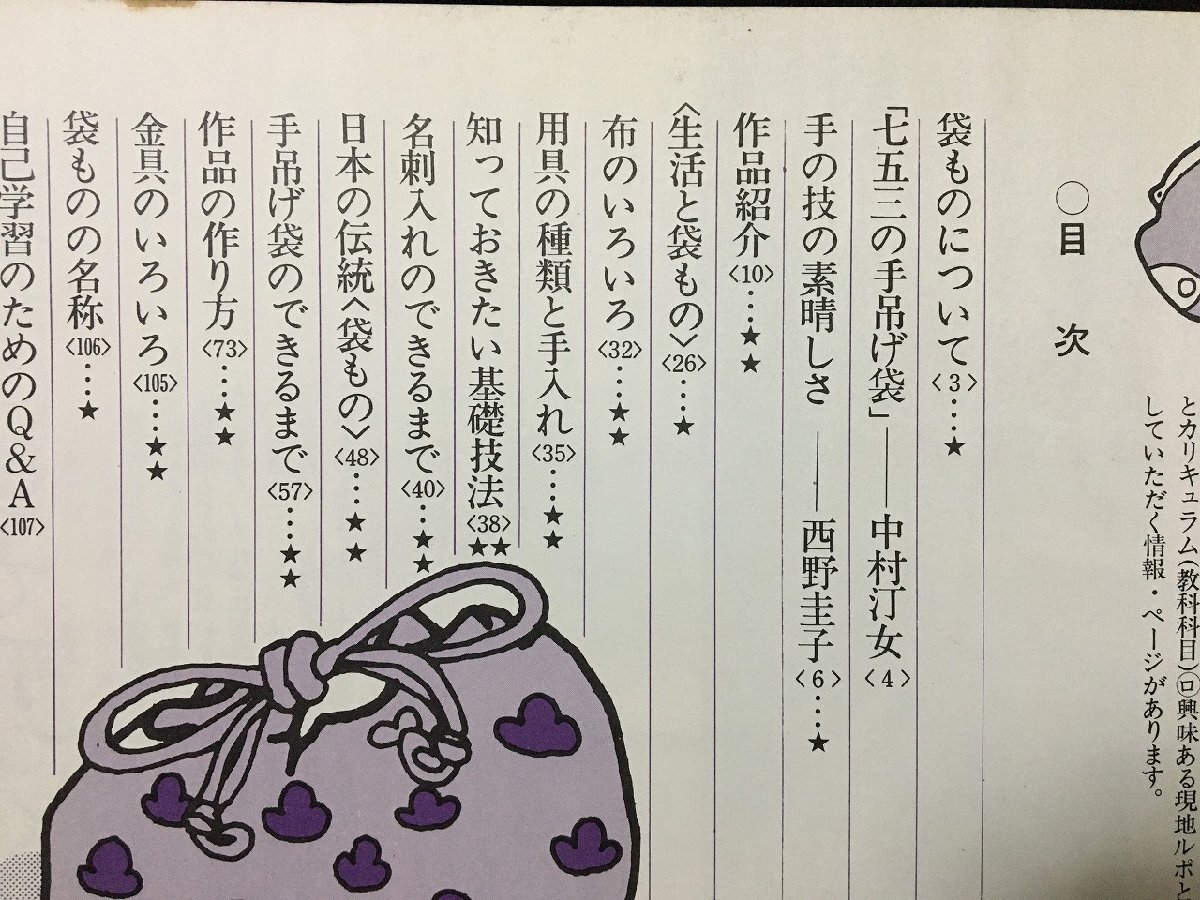 とカリキュラム(教科科目)㋺興味ある現地ルポと
していただく情報・ページがあります。
○目 次
袋ものについて〈3〉‥‥★
「七五三の手吊げ袋」——中村汀女〈4〉
手の技の素晴しさ ——西野圭子〈6〉‥‥★
作品紹介〈10〉‥‥★★
〈生活と袋もの〉〈26〉‥‥★
布のいろいろ〈32〉‥‥★★
用具の種類と手入れ〈35〉‥‥★★
知っておきたい基礎技法〈38〉★★
名刺入れのできるまで〈40〉‥★★
日本の伝統〈袋もの〉〈48〉‥‥★★
手吊げ袋のできるまで〈57〉‥‥★★
作品の作り方〈73〉‥‥★★
金具のいろいろ〈105〉‥‥★★
袋ものの名称〈106〉‥‥★
自己学習のためのQ&A〈107〉